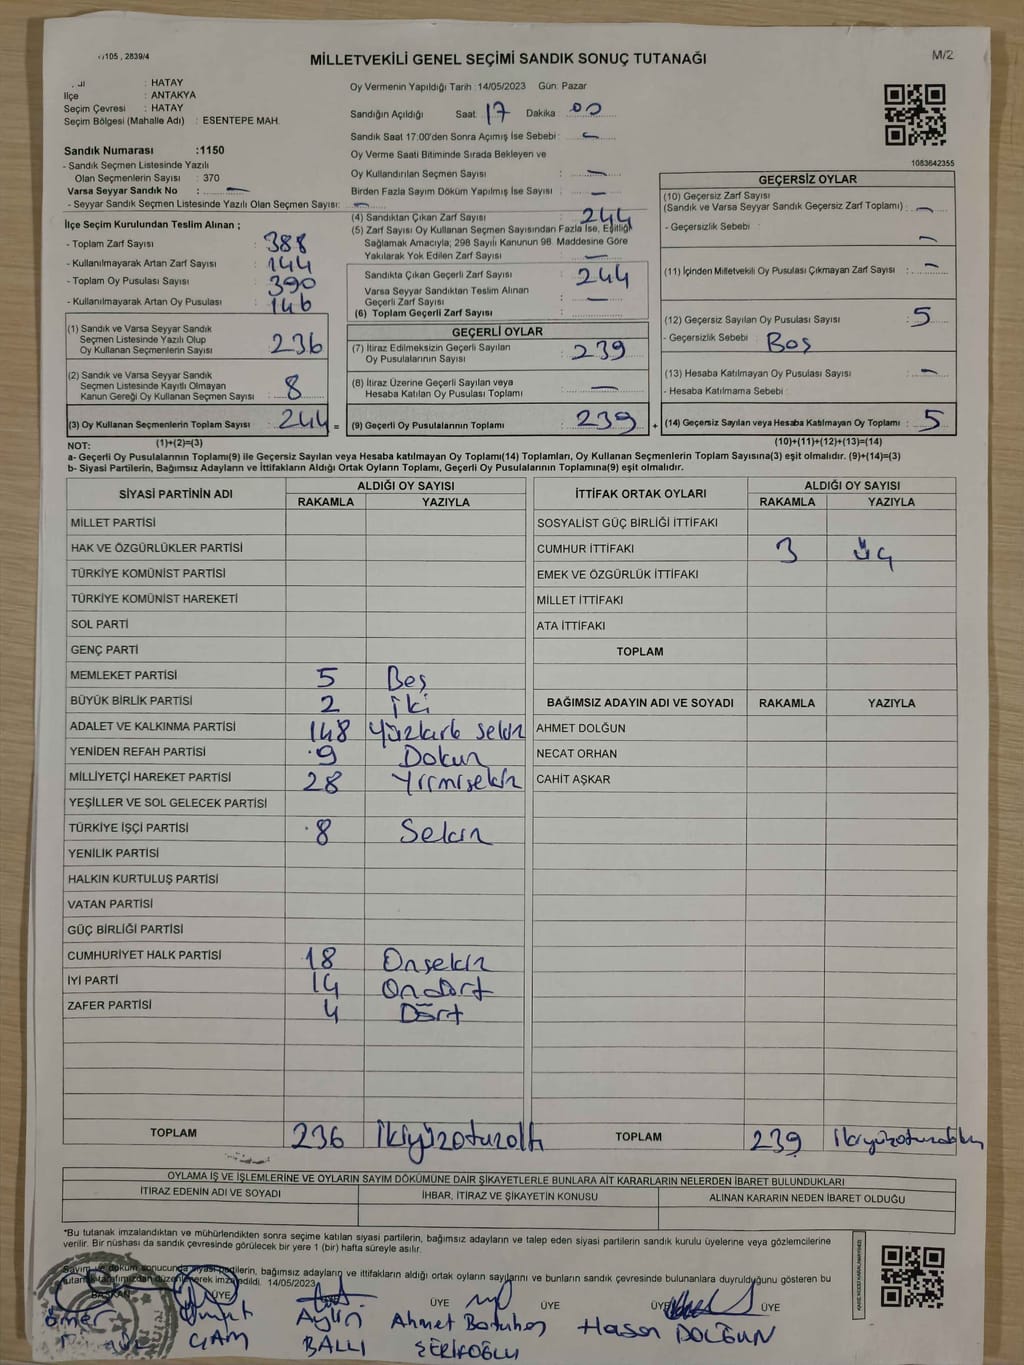 105 , 2839/4
MİLLETVEKİLİ GENEL SEÇİMİ SANDIK SONUÇ TUTANAĞI
M/2
: HATAY
İlçe : ANTAKYA
Seçim Çevresi : HATAY
Seçim Bölgesi (Mahalle Adı) : ESENTEPE MAH.
Oy Vermenin Yapıldığı Tarih :14/05/2023 Gün: Pazar
Sandığın Açıldığı Saat 17 Dakika 00
Sandık Saat 17:00'den Sonra Açılmış İse Sebebi :
Sandık Numarası :1150
- Sandık Seçmen Listesinde Yazılı
Olan Seçmenlerin Sayısı : 370
Varsa Seyyar Sandık No :
- Seyyar Sandık Seçmen Listesinde Yazılı Olan Seçmen Sayısı:
Oy Verme Saati Bitiminde Sırada Bekleyen ve
Oy Kullandırılan Seçmen Sayısı :
Birden Fazla Sayım Döküm Yapılmış İse Sayısı :
1083642355
İlçe Seçim Kurulundan Teslim Alınan ;
- Toplam Zarf Sayısı : 388
- Kullanılmayarak Artan Zarf Sayısı : 144
- Toplam Oy Pusulası Sayısı : 390
- Kullanılmayarak Artan Oy Pusulası : 146
(1) Sandık ve Varsa Seyyar Sandık
Seçmen Listesinde Yazılı Olup
Oy Kullanan Seçmenlerin Sayısı : 236
(2) Sandık ve Varsa Seyyar Sandık
Seçmen Listesinde Kayıtlı Olmayan
Kanun Gereği Oy Kullanan Seçmen Sayısı : 8
(3) Oy Kullanan Seçmenlerin Toplam Sayısı : 244 =
(4) Sandıktan Çıkan Zarf Sayısı : 244
(5) Zarf Sayısı Oy Kullanan Seçmen Sayısından Fazla İse, Eşitliği
Sağlamak Amacıyla; 298 Sayılı Kanunun 98. Maddesine Göre
Yakılarak Yok Edilen Zarf Sayısı :
Sandıkta Çıkan Geçerli Zarf Sayısı : 244
Varsa Seyyar Sandıktan Teslim Alınan
Geçerli Zarf Sayısı :
(6) Toplam Geçerli Zarf Sayısı :
GEÇERLİ OYLAR
(7) İtiraz Edilmeksizin Geçerli Sayılan
Oy Pusulalarının Sayısı : 239
(8) İtiraz Üzerine Geçerli Sayılan veya
Hesaba Katılan Oy Pusulası Toplamı :
(9) Geçerli Oy Pusulalarının Toplamı : 239 +
GEÇERSİZ OYLAR
(10) Geçersiz Zarf Sayısı
(Sandık ve Varsa Seyyar Sandık Geçersiz Zarf Toplamı) :
- Geçersizlik Sebebi :
(11) İçinden Milletvekili Oy Pusulası Çıkmayan Zarf Sayısı :
(12) Geçersiz Sayılan Oy Pusulası Sayısı : 5
- Geçersizlik Sebebi : Boş
(13) Hesaba Katılmayan Oy Pusulası Sayısı :
- Hesaba Katılmama Sebebi :
(14) Geçersiz Sayılan veya Hesaba Katılmayan Oy Toplamı : 5
NOT: (1)+(2)=(3)
(10)+(11)+(12)+(13)=(14)
a- Geçerli Oy Pusulalarının Toplamı(9) ile Geçersiz Sayılan veya Hesaba katılmayan Oy Toplamı(14) Toplamları, Oy Kullanan Seçmenlerin Toplam Sayısına(3) eşit olmalıdır. (9)+(14)=(3)
b- Siyasi Partilerin, Bağımsız Adayların ve İttifakların Aldığı Ortak Oyların Toplamı, Geçerli Oy Pusulalarının Toplamına(9) eşit olmalıdır.
SİYASİ PARTİNİN ADI ALDIĞI OY SAYISI
RAKAMLA YAZIYLA
MİLLET PARTİSİ
HAK VE ÖZGÜRLÜKLER PARTİSİ
TÜRKİYE KOMÜNİST PARTİSİ
TÜRKİYE KOMÜNİST HAREKETİ
SOL PARTİ
GENÇ PARTİ
MEMLEKET PARTİSİ 5 Beş
BÜYÜK BİRLİK PARTİSİ 2 iki
ADALET VE KALKINMA PARTİSİ 148 Yüzkırk sekiz
YENİDEN REFAH PARTİSİ 9 Dokuz
MİLLİYETÇİ HAREKET PARTİSİ 28 Yirmisekiz
YEŞİLLER VE SOL GELECEK PARTİSİ
TÜRKİYE İŞÇİ PARTİSİ 8 Sekiz
YENİLİK PARTİSİ
HALKIN KURTULUŞ PARTİSİ
VATAN PARTİSİ
GÜÇ BİRLİĞİ PARTİSİ
CUMHURİYET HALK PARTİSİ 18 Onsekiz
İYİ PARTİ 14 Ondört
ZAFER PARTİSİ 4 Dört
TOPLAM 236 ikiyüzotuzaltı
İTTİFAK ORTAK OYLARI ALDIĞI OY SAYISI
RAKAMLA YAZIYLA
SOSYALİST GÜÇ BİRLİĞİ İTTİFAKI
CUMHUR İTTİFAKI 3 üç
EMEK VE ÖZGÜRLÜK İTTİFAKI
MİLLET İTTİFAKI
ATA İTTİFAKI
TOPLAM
BAĞIMSIZ ADAYIN ADI VE SOYADI RAKAMLA YAZIYLA
AHMET DOLĞUN
NECAT ORHAN
CAHİT AŞKAR
TOPLAM 239 ikiyüzotuzdokuz
OYLAMA İŞ VE İŞLEMLERİNE VE OYLARIN SAYIM DÖKÜMÜNE DAİR ŞİKAYETLERLE BUNLARA AİT KARARLARIN NELERDEN İBARET BULUNDUKLARI
İTİRAZ EDENİN ADI VE SOYADI İHBAR, İTİRAZ VE ŞİKAYETİN KONUSU ALINAN KARARIN NEDEN İBARET OLDUĞU
*Bu tutanak imzalandıktan ve mühürlendikten sonra seçime katılan siyasi partilerin, bağımsız adayların ve talep eden siyasi partilerin sandık kurulu üyelerine veya gözlemcilerine
verilir. Bir nüshası da sandık çevresinde görülecek bir yere 1 (bir) hafta süreyle asılır.
Sayım ve döküm sonucunda siyasi partilerin, bağımsız adayların ve ittifakların aldığı ortak oyların sayılarını ve bunların sandık çevresinde bulunanlara duyrulduğunu gösteren bu
tutanak tarafımızdan düzenlenerek imza edildi. 14/05/2023
BAŞKAN ÜYE ÜYE ÜYE ÜYE ÜYE
Ömer Ümit Aylin Ahmet Batuhan Hasan DOLĞUN
ÇAM BALLI ŞERİFOĞLU